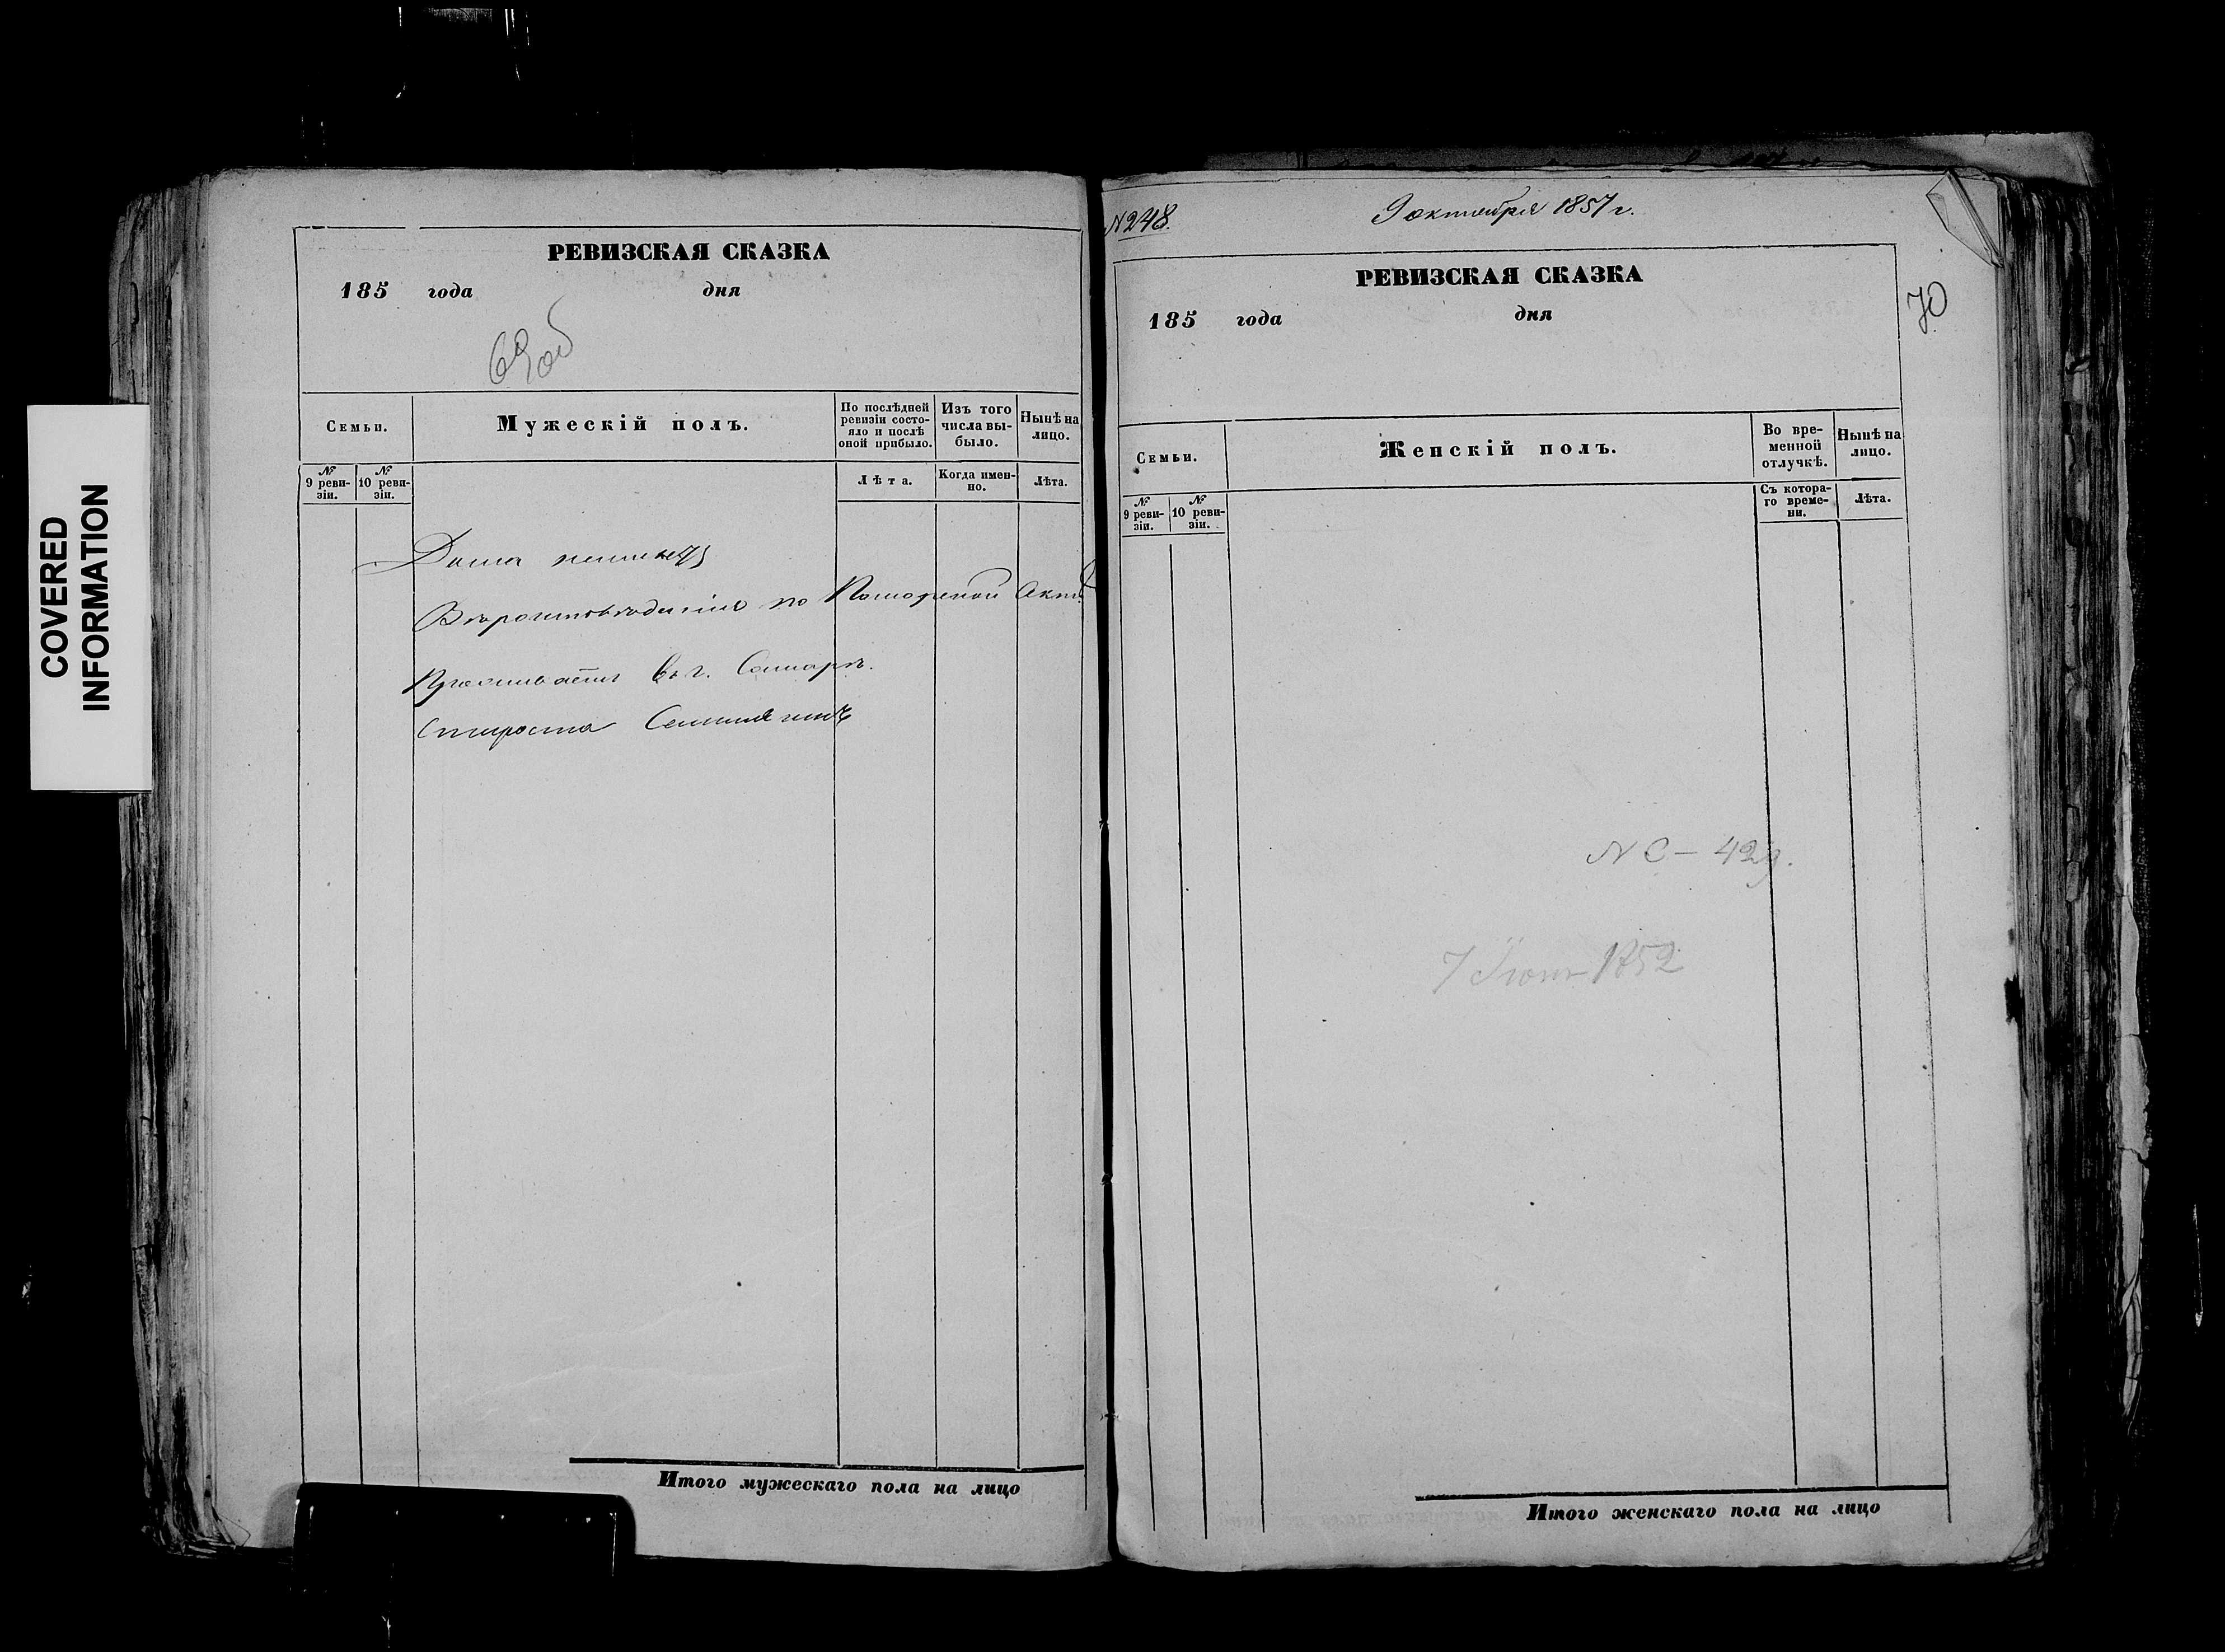 COVERED
INFORMATION
РЕВИЗСКАЯ СКАЗКА
185 года дня
69об
Семьи.
Мужескій полъ.
По послѣдней
ревизіи состо-
яло и послѣ
оной прибыло.
Изъ того
числа вы-
было.
Нынѣ на
лицо.
№
9 реви-
зіи.
№
10 реви-
зіи.
Лѣта.
Когда имен-
но.
Лѣта.
по
въ г. Самарѣ.
Староста
Итого мужескаго пола на лицо
N 248.
9 октября 1857 г.
РЕВИЗСКАЯ СКАЗКА
185 года дня
70
Семьи.
Женскій полъ.
Во вре-
менной
отлучкѣ.
Нынѣ на
лицо.
№
9 реви-
зіи.
№
10 реви-
зіи.
Съ котора-
го време-
ни.
Лѣта.
1852
Итого женскаго пола на лицо